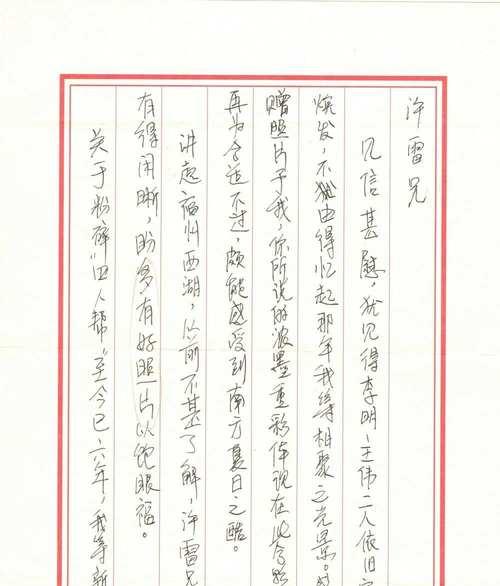 许雷兄
见信甚慰，犹见得李明、王伟二人依旧
焕发，不禁由得忆起那年我等相聚之光景。
赠照片予我，你所说的浓墨重彩体现在此
再为合适不过，颇能感受到南方夏日之酷。
讲起福州西湖，以前不甚了解，许雷兄
有得闲晰，盼多有好照片以饱眼福。
关于粉碎四人帮，至今已六年，我等